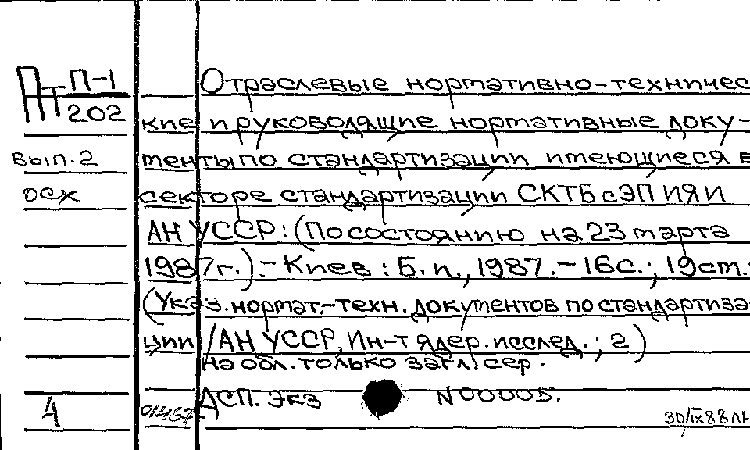 Пт П-1
202
Отраслевые нормативно-техничес
кие и руководящие нормативные доку-
вып. 2
менты по стандартизации имеющиеся в
осх
секторе стандартизации СКТБ с ЭП ИЯИ
АН УССР: (По состоянию на 23 марта
1987г.).- Киев : Б. и., 1987. - 16с.; 19ст.
(Указ. нормат.-техн. документов по стандартиза
ции / АН УССР, Ин-т ядер. исслед. ; 2)
На обл. только загл. сер.
4
ДСП. Экз N 00005.
30/IX 88